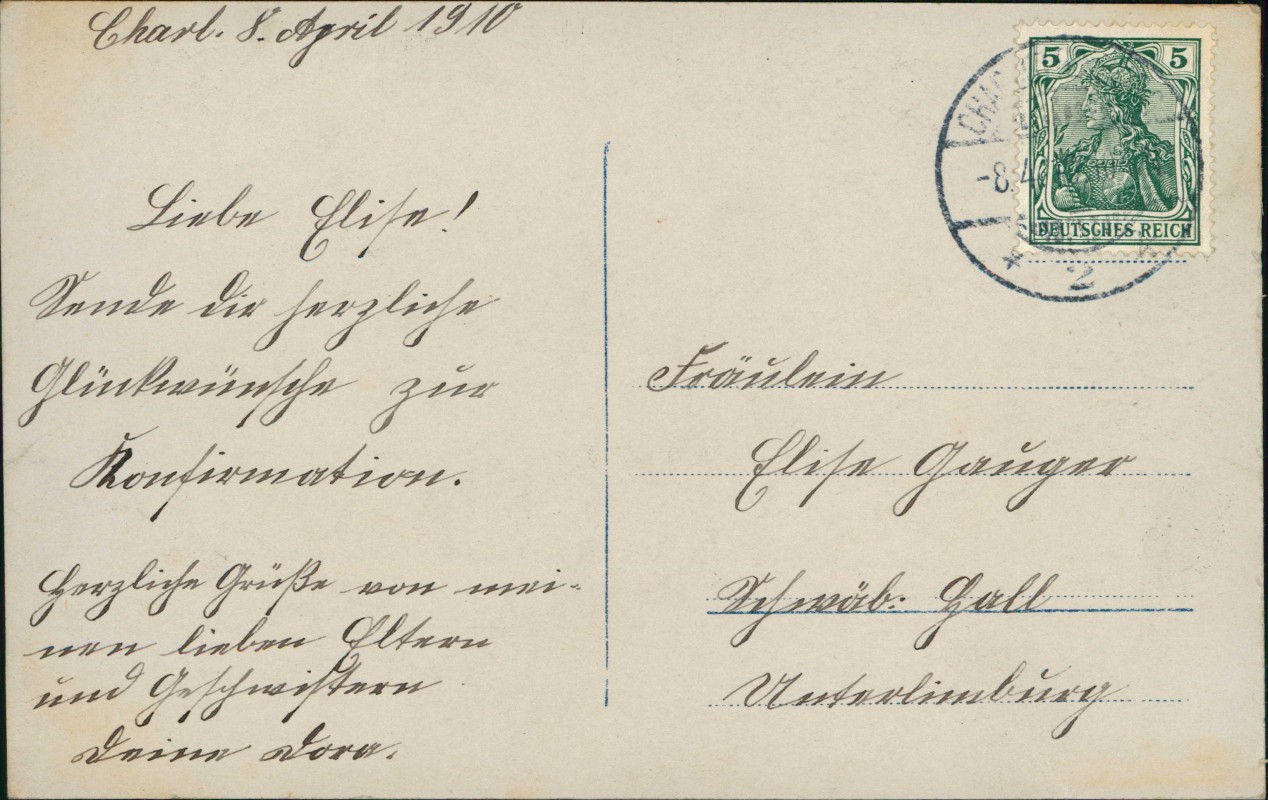 Charl. 8. April 1910
Liebe Elise!
Sende dir herzliche
Glückwünsche zur
Konfirmation.
Herzliche Grüße von mei-
nen lieben Eltern
und Geschwistern
Deine Dora.
5 5
DEUTSCHES REICH
-8.4
* 2
Fräulein
Elise Gauger
Schwäb. Hall
Unterlimburg